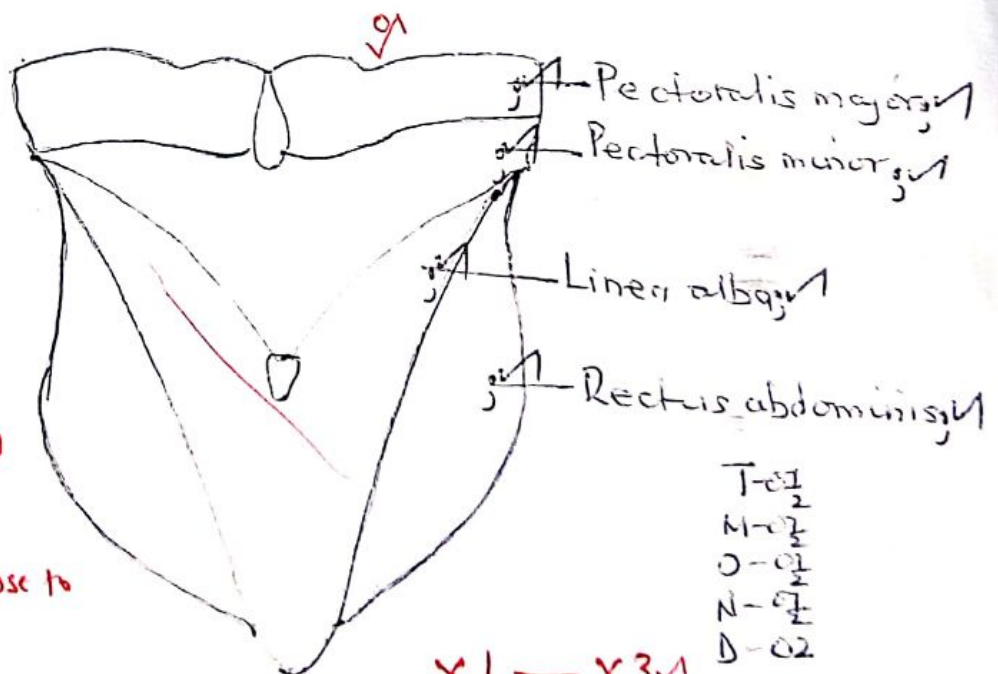 01
Pectoralis major
Pectoralis minor
Linea alba
Rectus abdominis
T-01/2
M-01/2
O-01/2
N-01/2
D-02
x 1 — x 3